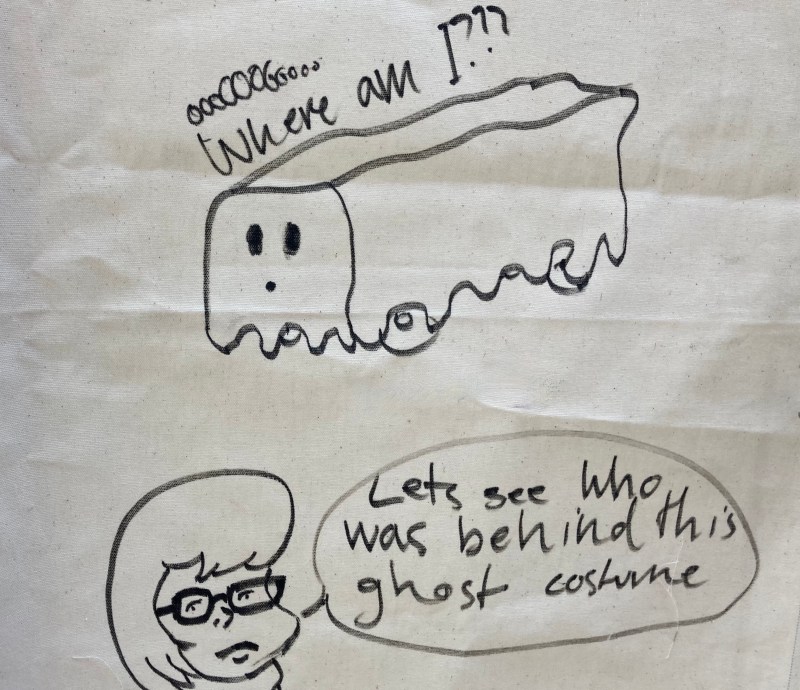 oooOOOGooooo
Where am I???
Lets see Who
was behind this
ghost costume